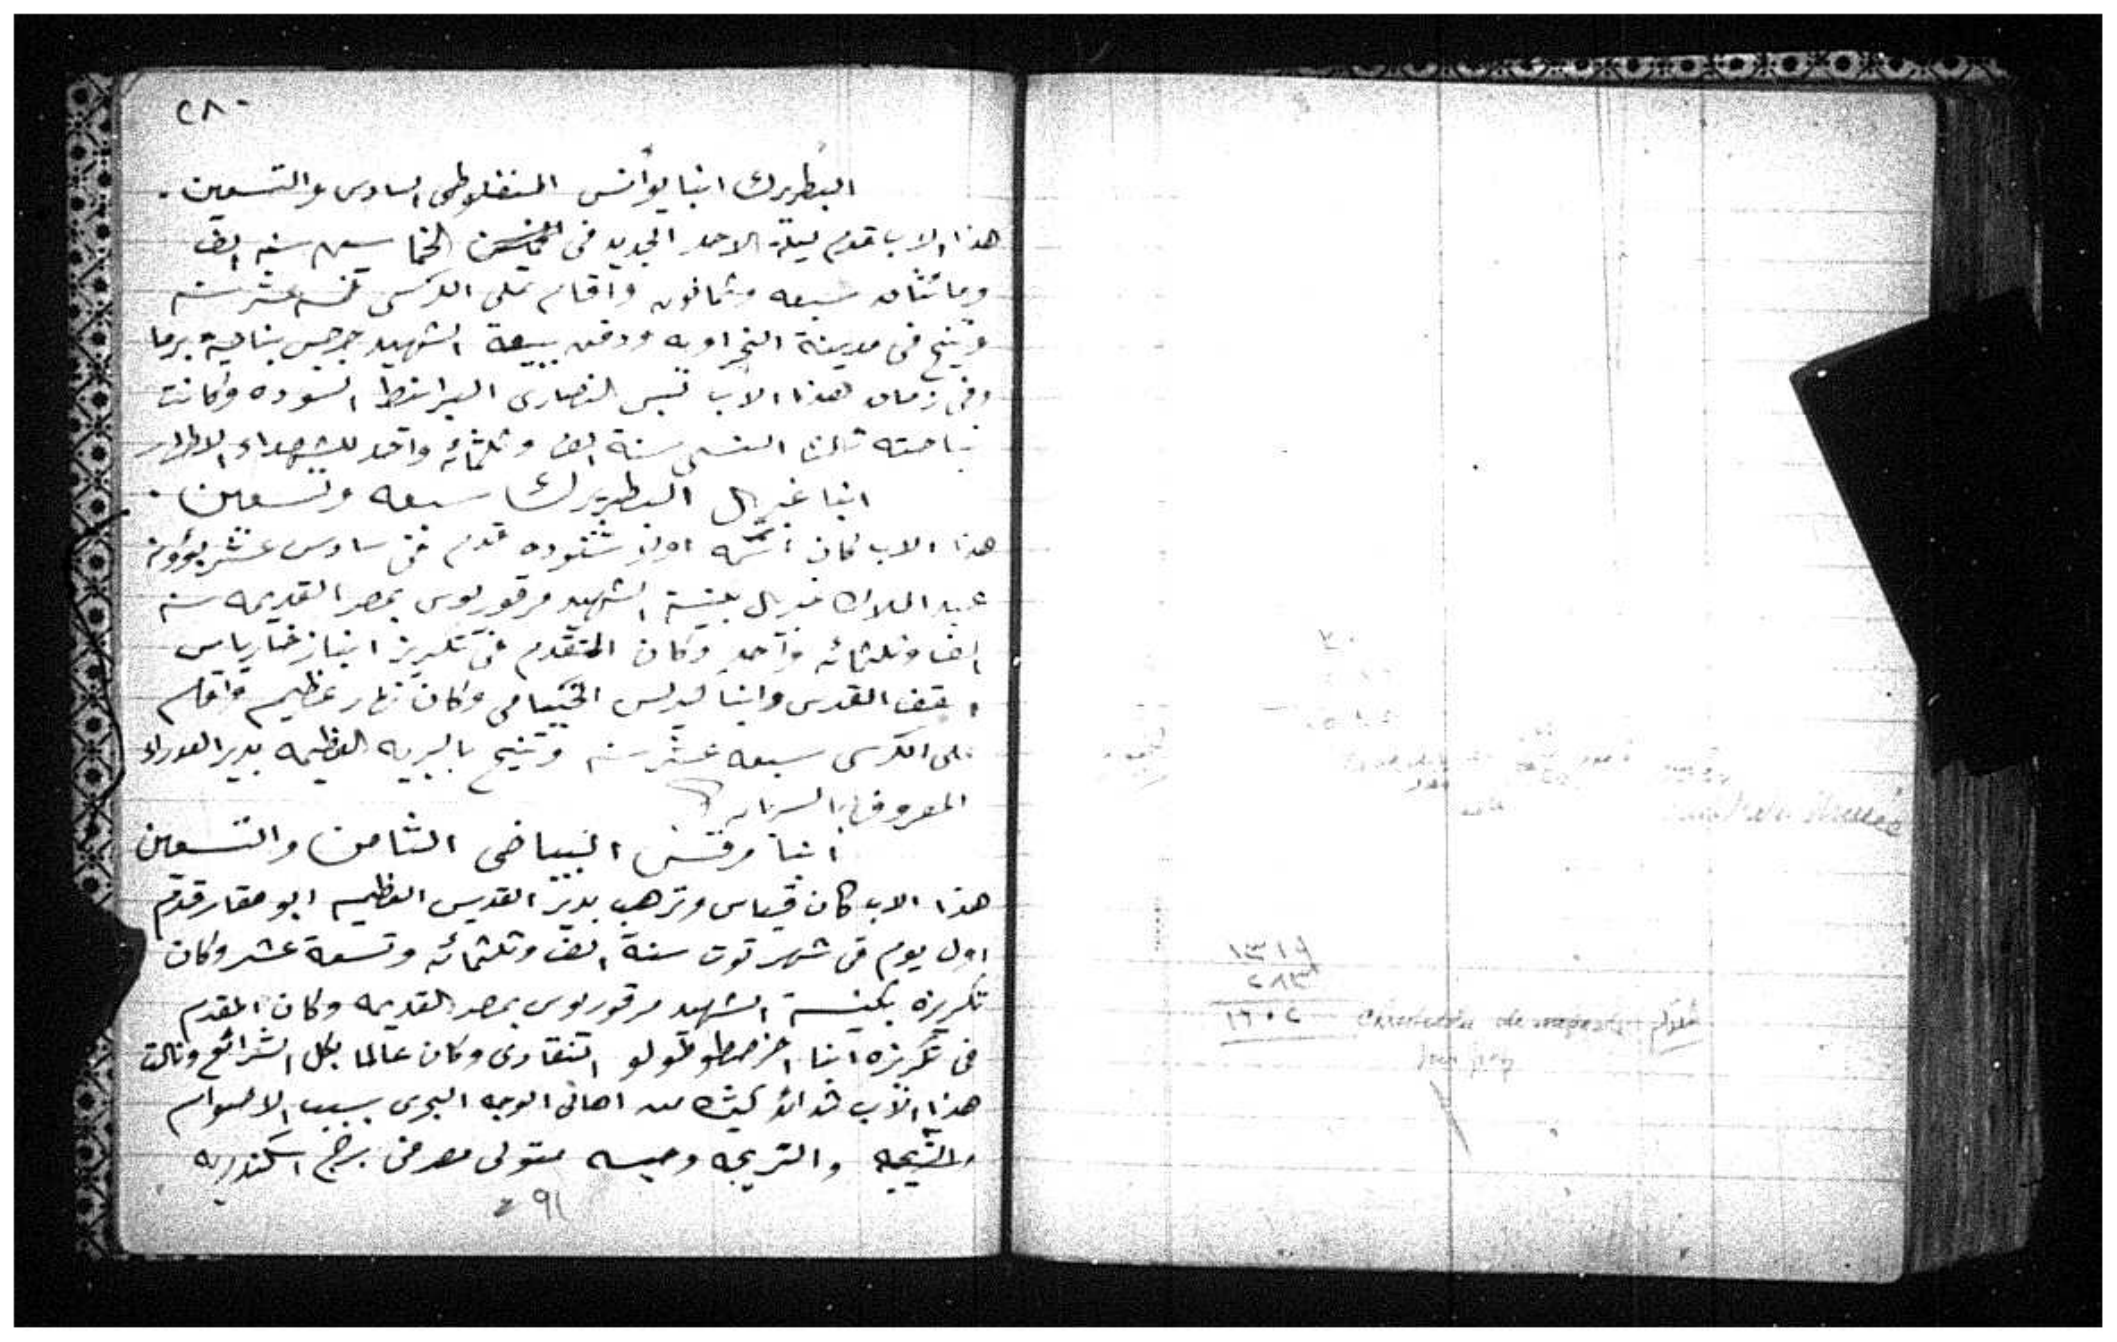 ٢٨٠
البطريرك انبا يوأنس المنفلوطى السادس والتسعين.
هذا الاب قدم ليلة الاحد الجديد فى الخماسين سنه الف
ومائتان سبعه وثمانون واقام على الكرسى عشر سنه
وتنيح فى مدينة النحراويه ودفن ببيعة الشهيد جرجس بناحية برما
وفى زمان هذا الاب لبس النصارى البرانيط السوده وكانت
نياحته ثالث النسى سنة الف وثلثمائه واحد للشهداء الاطهار
انبا غبريال البطريرك سبعه وتسعين.
هذا الاب كان اسمه اولا شنوده قدم فى سادس عشر بؤونه
عيد الملاك غبريال بكنيسة الشهيد مرقوريوس بمصر القديمه سنه
الف وثلثمائه واحد وكان المتقدم فى تكريز انبا زخارياس
اسقف القدس وانبا كيرلس وكان نهار عظيم واقام
على الكرسى سبعه عشر سنه وتنيح بالبريه العظيمه بدير العدراء
المعروف بالسريان
انبا مرقس البياضى الثامن والتسعين
هذا الاب كان وترهب بدير القديس العظيم ابو مقار قدم
اول يوم فى شهر توت سنة الف وثلثمائه وتسعة عشر وكان
تكريزه بكنيسة الشهيد مرقوريوس بمصر القديمه وكان المقدم
فى تكريزه انبا اخرصطوطولو التنقادى وكان عالما بكل الشرائع ونالت
هذا الاب شدائد كثيره من اهالى الوجه البحرى بسبب الاصوام
والتريجه وحبسه متولى مصر فى برج اسكندريه
٢٩١
٧٠
١٣١٩
٢٨٣
١٦٠٢